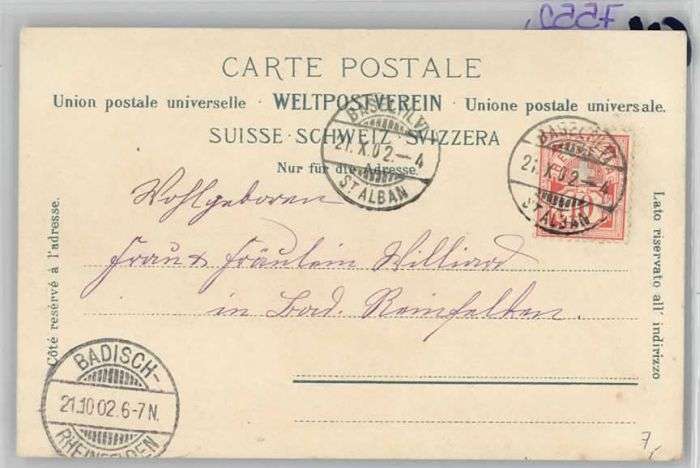 CARTE POSTALE
Union postale universelle · WELTPOSTVEREIN · Unione postale universale.
SUISSE · SCHWEIZ · SVIZZERA
Nur für die Adresse.
BASEL
21.X.02.–4
ST. ALBAN
BASEL
21.X.02.–4
ST. ALBAN
Côté reservé à l'adresse.
Lato riservato all' indirizzo
Wohlgeboren
Frau & Fräulein Williard
in Bad. Reinfelden.
BADISCH-
21.10 02. 6-7 N.
RHEINFELDEN
7,